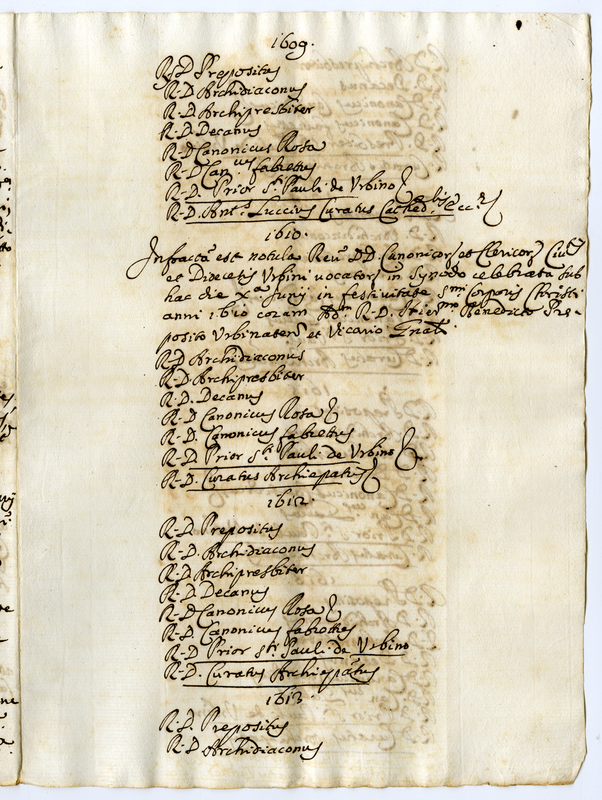 1609.
R. D. Prepositus
R. D. Archidiaconus
R. D. Archipresbiter
R. D. Decanus
R. D. Canonicus Rosa
R. D. Can.cus fabrettus
R. D. Prior S.ti Pauli de Urbino
R. D. Ant.s Luccius Curatus Cathed.lis
1610.
Infracta est notula Reu. DD. Canonicor. et Clericor. Ciu.
et Diocesis Urbini uocator. in Synodo celebrata sub
hac die X.a Junij in festiuitate S.mi Corporis Christi
anni 1610 coram R. D. Hier.mo Benedicto Pre-
posito Urbinaten. et Vicario Gnali.
R. D. Archidiaconus
R. D. Archipresbiter
R. D. Decanus
R. D. Canonicus Rosa
R. D. Canonicus fabrettus
R. D. Prior S.ti Pauli de Urbino
R. D. Curatus Archiepatus
1612.
R. D. Prepositus
R. D. Archidiaconus
R. D. Archipresbiter
R. D. Decanus
R. D. Canonicus Rosa
R. D. Canonicus fabrettus
R. D. Prior S.ti Pauli de Urbino
R. D. Curatus Archiepatus
1613.
R. D. Prepositus
R. D. Archidiaconus